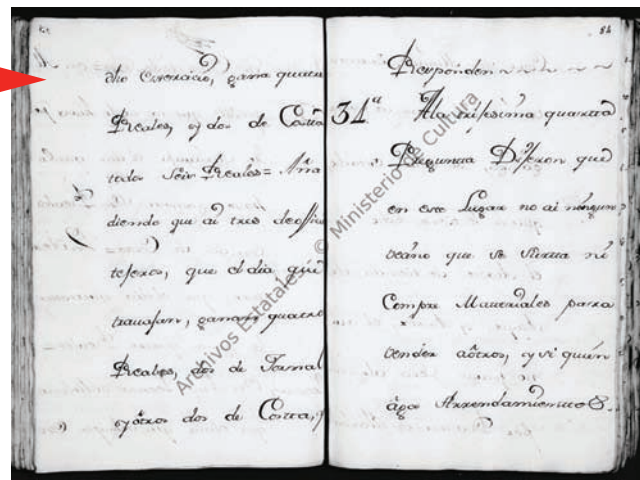 dho Exerzicio, gana quatro
Reales, y dos de Costa
todos Seis Reales= Aña
diendo que ai tres de ofizio
tejeros, que el dia que
travajan, ganan quatro
Reales, dos de Jornal
y otros dos de Costa, y
84
Responden
34ª A la trijesima quarta
Pregunta Dijeron que
en este Lugar no ai ningun
vezino que se sirva ni
Compre Materiales para
vender a otros, y si quien
aga Arrendamientos.
Archivos Estatales © Ministerio de Cultura